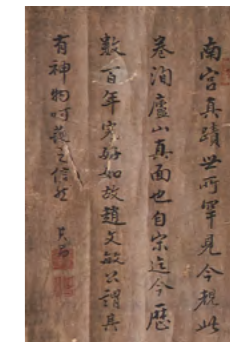 南宮真蹟世所罕見今觀此
卷洵廬山真面也自宋迄今歷
數百年完好如故趙文敏公謂具
有神物呵護之信然